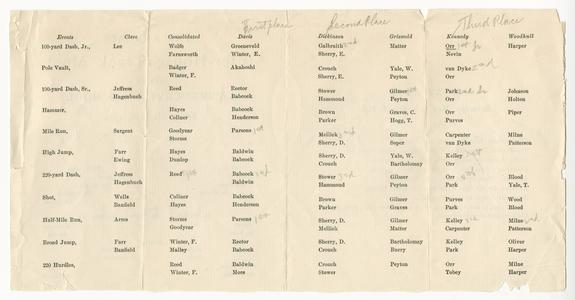 First place Second Place Third Place
Events Cleve Consolidated Davis Dickinson Griswold Kennedy Woodhull
100-yard Dash, Jr., Lee Wolfe Groeneveld Galbraith 2nd Matter Orr Jr Harper
Farnsworth Winter, E. Sherry, E. Nevin
Pole Vault, Badger Akahoshi Crouch Yale, W. van Dyke
Winter, F. Sherry, E. Peyton Orr
100-yard Dash, Sr., Jeffress Reed Rector Stower Gilmer Park Johnson
Hagenbuch Babcock Hammond Peyton Orr Holten
Hammer, Hayes Babcock Brown Graves, C. Orr Piper
Collner Henderson Parker Hogg, T. Purves
Mile Run, Sargent Goodyear Parsons Mellick Gilmer Carpenter Milne
Storms Sherry, D. Soper van Dyke Patterson
High Jump, Farr Hayes Baldwin Sherry, D. Yale, W. Kelley
Ewing Dunlop Babcock Crouch Bartholomay Orr
220-yard Dash, Jeffress Reed Babcock Stower Gilmer Orr Blood
Hagenbuch Baldwin Hammond Peyton Park Yale, T.
Shot, Wells Collner Babcock Brown Gilmer Purves Wood
Banfield Hayes Henderson Parker Graves Park Blood
Half-Mile Run, Arms Storms Parsons Sherry, D. Gilmer Kelley Milne
Goodyear Mellick Matter Carpenter Patterson
Broad Jump, Farr Winter, F. Rector Sherry, D. Bartholomay Kelley Oliver
Banfield Malley Babcock Crouch Berry Park Harper
220 Hurdles, Reed Baldwin Crouch Peyton Orr Milne
Winter, F. More Stower Tobey Harper